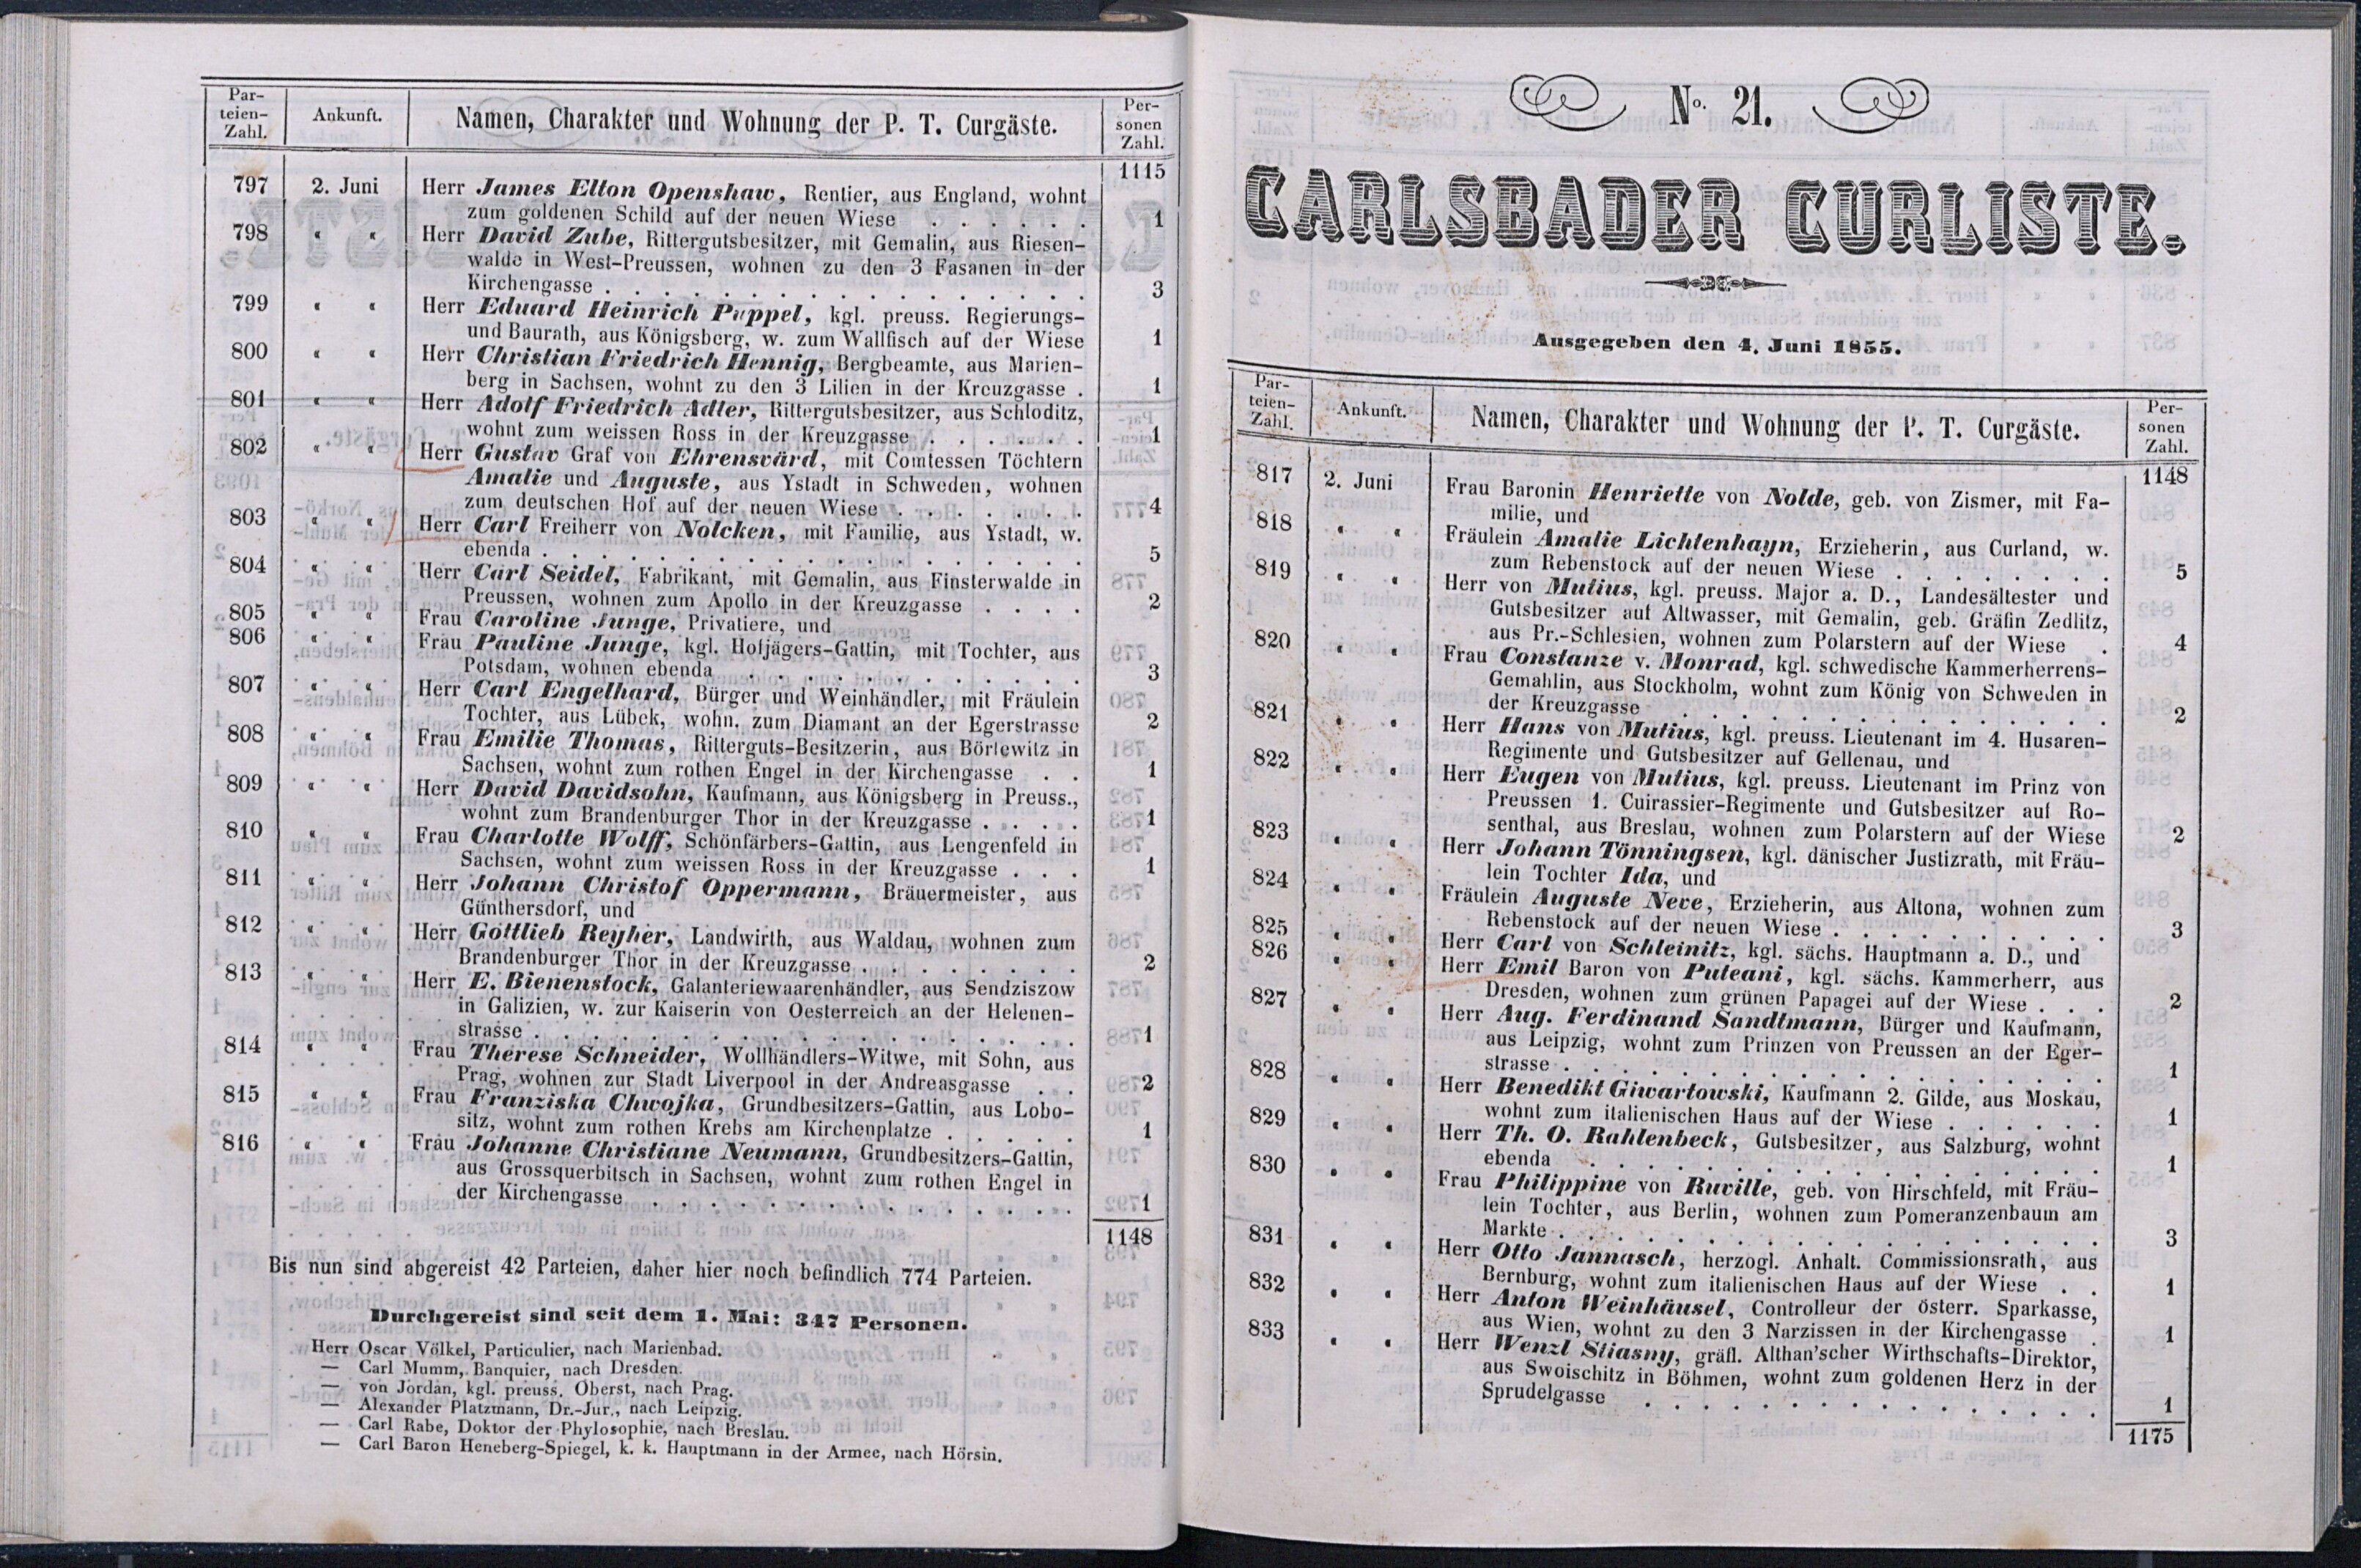 Par-
teien-
Zahl.
Ankunft.
Namen, Charakter und Wohnung der P. T. Curgäste.
Per-
sonen
Zahl.
1115
797 2. Juni Herr James Elton Openshaw, Rentier, aus England, wohnt
zum goldenen Schild auf der neuen Wiese . . . . . . 1
798 “ “ Herr David Zube, Rittergutsbesitzer, mit Gemalin, aus Riesen-
walde in West-Preussen, wohnen zu den 3 Fasanen in der
Kirchengasse . . . . . . . . . . . . . . . . 3
799 “ “ Herr Eduard Heinrich Puppel, kgl. preuss. Regierungs-
und Baurath, aus Königsberg, w. zum Wallfisch auf der Wiese 1
800 “ “ Herr Christian Friedrich Hennig, Bergbeamte, aus Marien-
berg in Sachsen, wohnt zu den 3 Lilien in der Kreuzgasse . 1
801 “ “ Herr Adolf Friedrich Adler, Rittergutsbesitzer, aus Schloditz,
wohnt zum weissen Ross in der Kreuzgasse . . . . . . 1
802 “ “ Herr Gustav Graf von Ehrensvärd, mit Comtessen Töchtern
Amalie und Auguste, aus Ystadt in Schweden, wohnen
zum deutschen Hof auf der neuen Wiese . . . . . . . 4
803 “ “ Herr Carl Freiherr von Nolcken, mit Familie, aus Ystadt, w.
ebenda . . . . . . . . . . . . . . . . . . 5
804 “ “ Herr Carl Seidel, Fabrikant, mit Gemalin, aus Finsterwalde in
Preussen, wohnen zum Apollo in der Kreuzgasse . . . . 2
805 “ “ Frau Caroline Junge, Privatiere, und
806 “ “ Frau Pauline Junge, kgl. Hofjägers-Gattin, mit Tochter, aus
Potsdam, wohnen ebenda . . . . . . . . . . . . 3
807 “ “ Herr Carl Engelhard, Bürger und Weinhändler, mit Fräulein
Tochter, aus Lübek, wohn. zum Diamant an der Egerstrasse 2
808 “ “ Frau Emilie Thomas, Ritterguts-Besitzerin, aus Börlewitz in
Sachsen, wohnt zum rothen Engel in der Kirchengasse . . 1
809 “ “ Herr David Davidsohn, Kaufmann, aus Königsberg in Preuss.,
wohnt zum Brandenburger Thor in der Kreuzgasse . . . . 1
810 “ “ Frau Charlotte Wolff, Schönfärbers-Gattin, aus Lengenfeld in
Sachsen, wohnt zum weissen Ross in der Kreuzgasse . . . 1
811 “ “ Herr Johann Christof Oppermann, Bräuermeister, aus
Günthersdorf, und
812 “ “ Herr Gottlieb Reyher, Landwirth, aus Waldau, wohnen zum
Brandenburger Thor in der Kreuzgasse . . . . . . . . 2
813 “ “ Herr E. Bienenstock, Galanteriewaarenhändler, aus Sendziszow
in Galizien, w. zur Kaiserin von Oesterreich an der Helenen-
strasse . . . . . . . . . . . . . . . . . . 1
814 “ “ Frau Therese Schneider, Wollhändlers-Witwe, mit Sohn, aus
Prag, wohnen zur Stadt Liverpool in der Andreasgasse . . 2
815 “ “ Frau Franziska Chwojka, Grundbesitzers-Gattin, aus Lobo-
sitz, wohnt zum rothen Krebs am Kirchenplatze . . . . . 1
816 “ “ Frau Johanne Christiane Neumann, Grundbesitzers-Gattin,
aus Grossquerbitsch in Sachsen, wohnt zum rothen Engel in
der Kirchengasse . . . . . . . . . . . . . . . 1
1148
Bis nun sind abgereist 42 Parteien, daher hier noch befindlich 774 Parteien.
Durchgereist sind seit dem 1. Mai: 347 Personen.
Herr Oscar Völkel, Particulier, nach Marienbad.
— Carl Mumm, Banquier, nach Dresden.
— von Jordan, kgl. preuss. Oberst, nach Prag.
— Alexander Platzmann, Dr.-Jur., nach Leipzig.
— Carl Rabe, Doktor der Phylosophie, nach Breslau.
— Carl Baron Heneberg-Spiegel, k. k. Hauptmann in der Armee, nach Hörsin.
No. 21.
CARLSBADER CURLISTE.
Ausgegeben den 4. Juni 1855.
Par-
teien-
Zahl.
Ankunft.
Namen, Charakter und Wohnung der P. T. Curgäste.
Per-
sonen
Zahl.
1148
817 2. Juni Frau Baronin Henriette von Nolde, geb. von Zismer, mit Fa-
milie, und
818 “ “ Fräulein Amalie Lichtenhayn, Erzieherin, aus Curland, w.
zum Rebenstock auf der neuen Wiese . . . . . . . . 5
819 “ “ Herr von Mutius, kgl. preuss. Major a. D., Landesältester und
Gutsbesitzer auf Altwasser, mit Gemalin, geb. Gräfin Zedlitz,
aus Pr.-Schlesien, wohnen zum Polarstern auf der Wiese . 4
820 “ “ Frau Constanze v. Monrad, kgl. schwedische Kammerherrens-
Gemahlin, aus Stockholm, wohnt zum König von Schweden in
der Kreuzgasse . . . . . . . . . . . . . . . 2
821 “ “ Herr Hans von Mutius, kgl. preuss. Lieutenant im 4. Husaren-
Regimente und Gutsbesitzer auf Gellenau, und
822 “ “ Herr Eugen von Mutius, kgl. preuss. Lieutenant im Prinz von
Preussen 1. Cuirassier-Regimente und Gutsbesitzer auf Ro-
senthal, aus Breslau, wohnen zum Polarstern auf der Wiese 2
823 “ “ Herr Johann Tönningsen, kgl. dänischer Justizrath, mit Fräu-
lein Tochter Ida, und
824 “ “ Fräulein Auguste Neve, Erzieherin, aus Altona, wohnen zum
Rebenstock auf der neuen Wiese . . . . . . . . . . 3
825 “ “ Herr Carl von Schleinitz, kgl. sächs. Hauptmann a. D., und
826 “ “ Herr Emil Baron von Puteani, kgl. sächs. Kammerherr, aus
Dresden, wohnen zum grünen Papagei auf der Wiese . . . 2
827 “ “ Herr Aug. Ferdinand Sandtmann, Bürger und Kaufmann,
aus Leipzig, wohnt zum Prinzen von Preussen an der Eger-
strasse . . . . . . . . . . . . . . . . . . 1
828 “ “ Herr Benedikt Giwartowski, Kaufmann 2. Gilde, aus Moskau,
wohnt zum italienischen Haus auf der Wiese . . . . . . 1
829 “ “ Herr Th. O. Rahlenbeck, Gutsbesitzer, aus Salzburg, wohnt
ebenda . . . . . . . . . . . . . . . . . . 1
830 “ “ Frau Philippine von Ruville, geb. von Hirschfeld, mit Fräu-
lein Tochter, aus Berlin, wohnen zum Pomeranzenbaum am
Markte . . . . . . . . . . . . . . . . . . 3
831 “ “ Herr Otto Jannasch, herzogl. Anhalt. Commissionsrath, aus
Bernburg, wohnt zum italienischen Haus auf der Wiese . . 1
832 “ “ Herr Anton Weinhäusel, Controlleur der österr. Sparkasse,
aus Wien, wohnt zu den 3 Narzissen in der Kirchengasse . 1
833 “ “ Herr Wenzl Stiasny, gräfl. Althan'scher Wirthschafts-Direktor,
aus Swoischitz in Böhmen, wohnt zum goldenen Herz in der
Sprudelgasse . . . . . . . . . . . . . . . . 1
1175